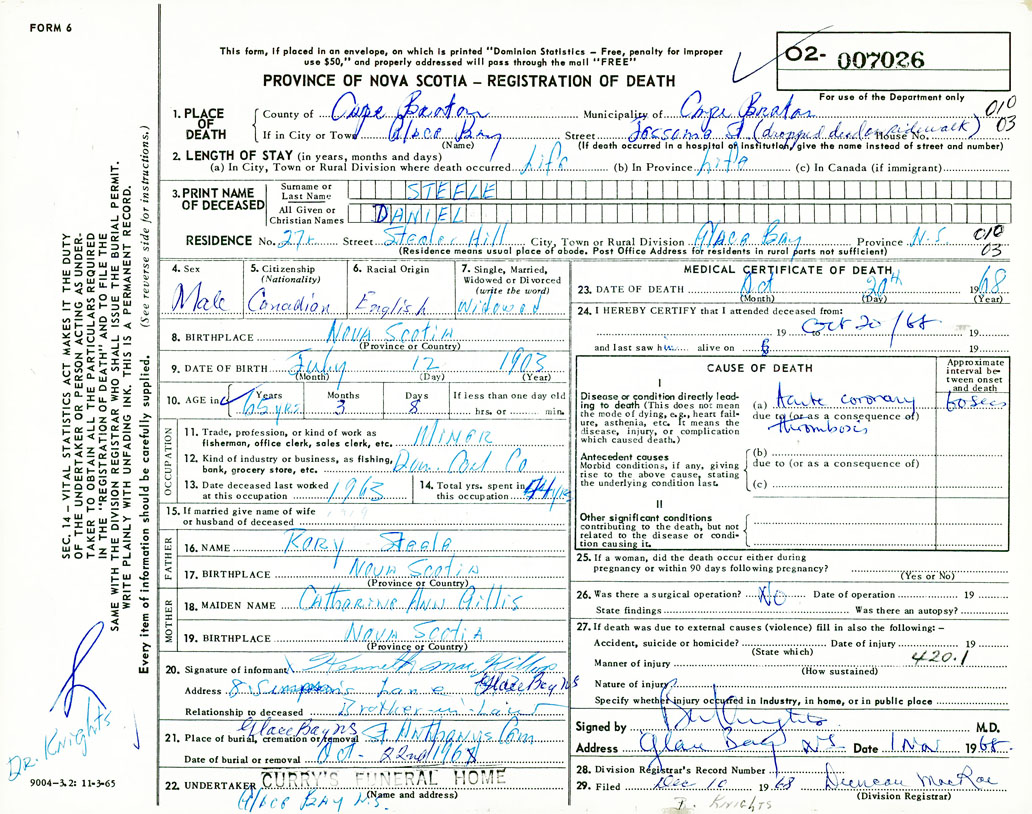 FORM 6
This form, if placed in an envelope, on which is printed "Dominion Statistics – Free, penalty for improper
use $50," and properly addressed will pass through the mail "FREE"
PROVINCE OF NOVA SCOTIA – REGISTRATION OF DEATH
O2- 007026
For use of the Department only
010
03
1. PLACE OF DEATH
County of Cape Breton Municipality of Cape Breton
If in City or Town Glace Bay Street (dropped dead on sidewalk) House No.
(Name) (If death occurred in a hospital or institution, give the name instead of street and number)
2. LENGTH OF STAY (in years, months and days)
(a) In City, Town or Rural Division where death occurred Life (b) In Province Life (c) In Canada (if immigrant)
3. PRINT NAME OF DECEASED
Surname or Last Name STEELE
All Given or Christian Names DANIEL
RESIDENCE No. 27 Street Steeles Hill City, Town or Rural Division Glace Bay Province N.S
010
03
(Residence means usual place of abode. Post Office Address for residents in rural parts not sufficient)
4. Sex
Male
5. Citizenship
(Nationality)
Canadian
6. Racial Origin
English
7. Single, Married,
Widowed or Divorced
(write the word)
Widowed
8. BIRTHPLACE Nova Scotia
(Province or Country)
9. DATE OF BIRTH July 12 1903
(Month) (Day) (Year)
10. AGE in
Years Months Days If less than one day old
65 yrs 3 8 hrs. or min.
OCCUPATION
11. Trade, profession, or kind of work as
fisherman, office clerk, sales clerk, etc. MINER
12. Kind of industry or business, as fishing,
bank, grocery store, etc. Dom. Coal Co
13. Date deceased last worked
at this occupation 1963
14. Total yrs. spent in
this occupation 44 yrs
15. If married give name of wife
or husband of deceased
FATHER
16. NAME Rory Steele
17. BIRTHPLACE Nova Scotia
(Province or Country)
MOTHER
18. MAIDEN NAME Catharine Ann Gillis
19. BIRTHPLACE Nova Scotia
(Province or Country)
20. Signature of informant Kenneth Mac Killop
Address 8 Simpson's Lane Glace Bay NS
Relationship to deceased Brother-in-Law
Glace Bay NS
21. Place of burial, cremation or removal St Anthonys Cem
Date of burial or removal Oct - 22nd 1968
22. UNDERTAKER CURRY'S FUNERAL HOME
(Name and address)
Glace Bay N.S.
MEDICAL CERTIFICATE OF DEATH
23. DATE OF DEATH Oct 20th 1968
(Month) (Day) (Year)
24. I HEREBY CERTIFY that I attended deceased from:
19 to Oct 20/68 19
and last saw him alive on 19
CAUSE OF DEATH
Approximate interval between onset and death
I
Disease or condition directly leading to death (This does not mean the mode of dying, e.g., heart failure, asthenia, etc. It means the disease, injury, or complication which caused death.)
(a) Acute coronary 60 secs
due to (or as a consequence of)
thrombosis
Antecedent causes
Morbid conditions, if any, giving rise to the above cause, stating the underlying condition last.
(b)
due to (or as a consequence of)
(c)
II
Other significant conditions
contributing to the death, but not related to the disease or condition causing it.
25. If a woman, did the death occur either during
pregnancy or within 90 days following pregnancy?
(Yes or No)
26. Was there a surgical operation? No Date of operation 19
State findings Was there an autopsy?
27. If death was due to external causes (violence) fill in also the following: –
Accident, suicide or homicide? Date of injury 19
(State which) 420.1
Manner of injury
(How sustained)
Nature of injury
Specify whether injury occurred in industry, in home, or in public place
Signed by M.D.
Address Glace Bay NS Date 1 Nov 1968.
28. Division Registrar's Record Number
29. Filed Dec 10 1968 Duncan MacRae
(Division Registrar)
D. KNIGHTS
SEC. 14 – VITAL STATISTICS ACT MAKES IT THE DUTY
OF THE UNDERTAKER OR PERSON ACTING AS UNDER-
TAKER TO OBTAIN ALL THE PARTICULARS REQUIRED
IN THE "REGISTRATION OF DEATH" AND TO FILE THE
SAME WITH THE DIVISION REGISTRAR WHO SHALL ISSUE THE BURIAL PERMIT.
WRITE PLAINLY WITH UNFADING INK. THIS IS A PERMANENT RECORD.
Every item of information should be carefully supplied. (See reverse side for instructions.)
DR. Knights
9004-3.2: 11-3-65